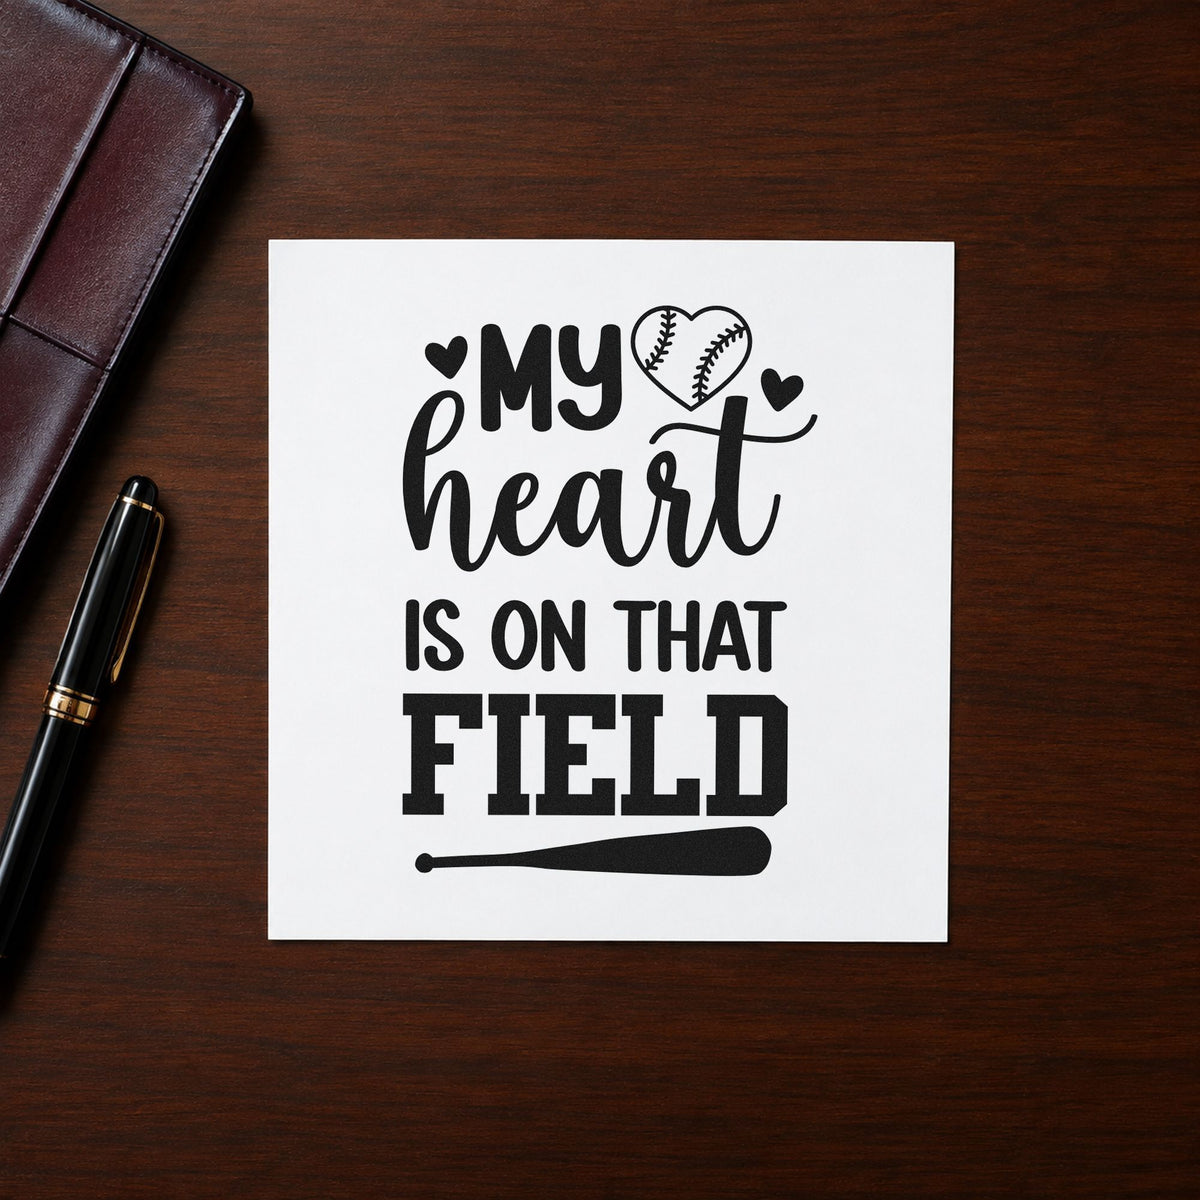 MY
heart
IS ON THAT
FIELD